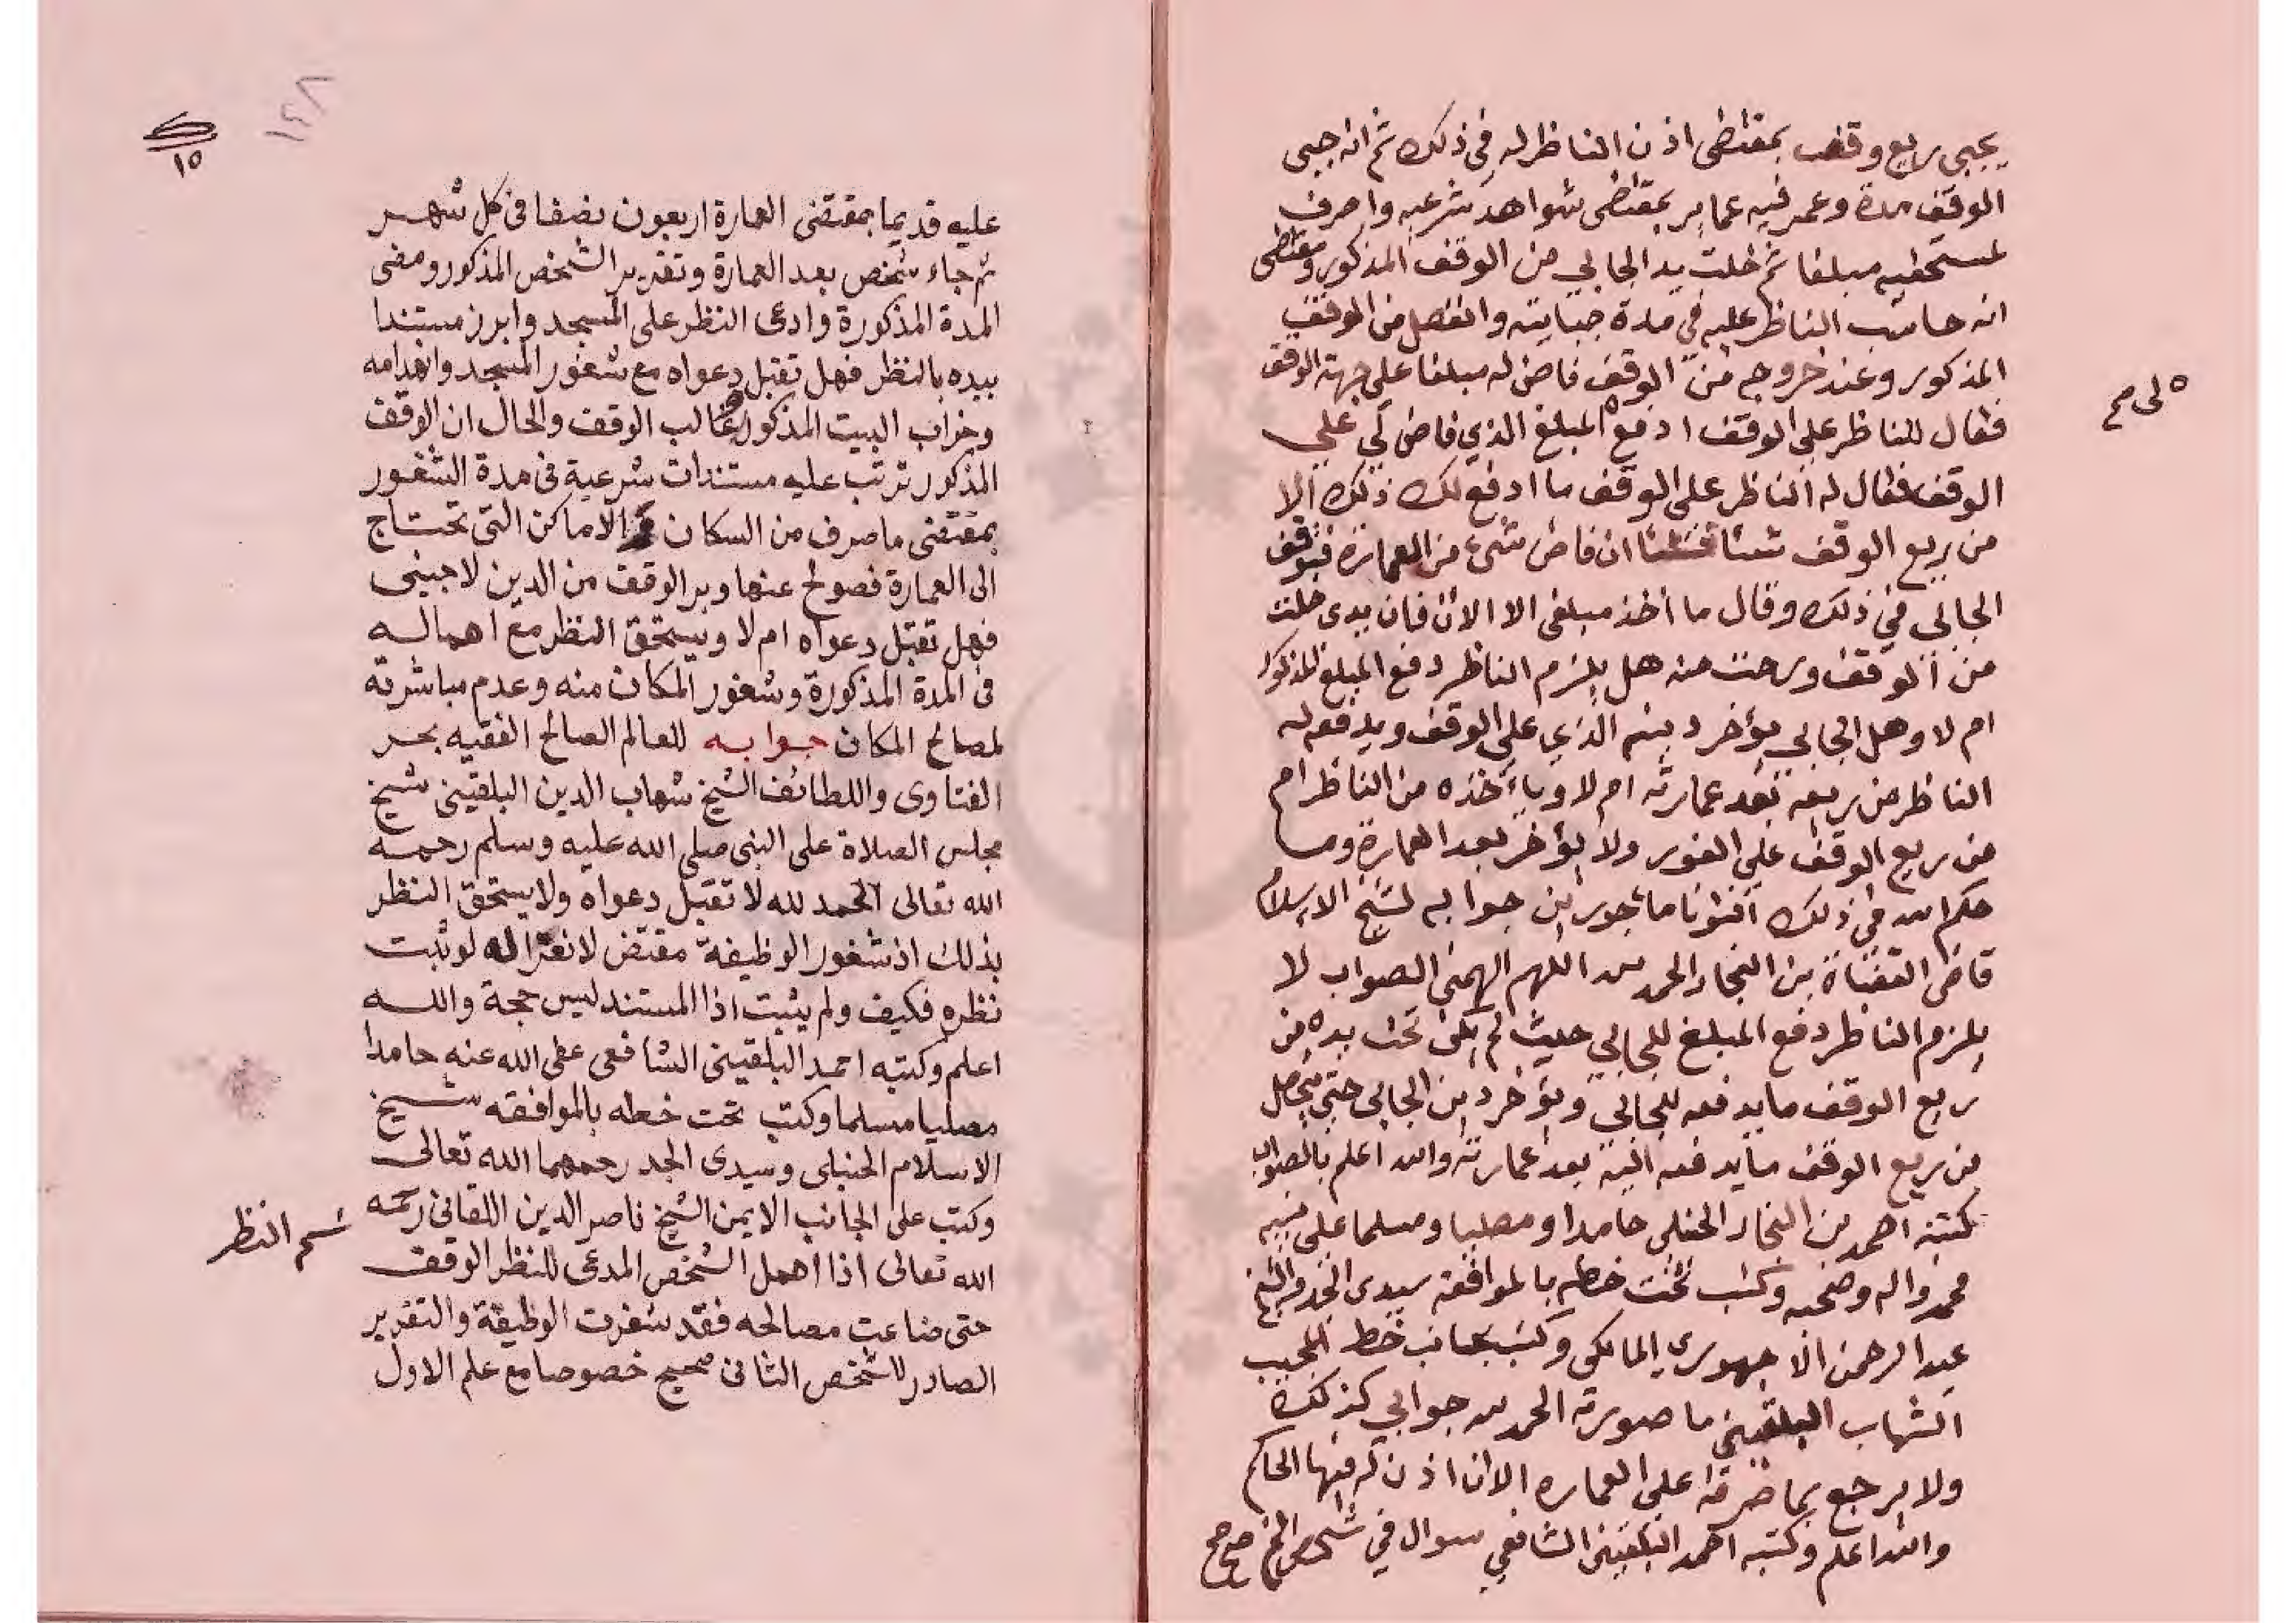 يجبي ريع وقف بمقتضى اذن الناظر له في ذلك ثم انه جبى
الوقف مدة وعمر فيه عماير بمقتضى شواهد شرعيه واصرف
لمستحقيه مبلغا ثم خلت يد الجابي من الوقف المذكور ومقتضى
انه حاسب الناظر عليه في مدة جبايته وانفصل من الوقف
المذكور وعند خروجه من الوقف فاض له مبلغا على جهة الوقف
فقال للناظر على الوقف ادفع المبلغ الذي فاض لي على
لى صح
الوقف فقال له الناظر على الوقف ما ادفع لك ذلك الا
من ريع الوقف شيئا فشيئا ان فاض شيء من العمارة فتوقف
الجابي في ذلك وقال ما أخذ مبلغي الا الان فان يدى خلت
من الوقف ورحت منه هل يلزم الناظر دفع المبلغ المذكور
ام لا وهل الجابي يؤخر دينه الذي على الوقف ويدفعه له
الناظر من ريعه بعد عمارته ام لا ويأخذه من الناظر ام
من ريع الوقف على الفور ولا يؤخر بعد العمارة وما
حكم الله في ذلك أفتونا مأجورين جوابه لشيخ الاسلام
قاضى القضاة بن النجار الحمد لله اللهم الهمني الصواب لا
يلزم الناظر دفع المبلغ للجابي حيث لم يكن تحت يده من
ريع الوقف ما يدفعه للجابي ويؤخر دين الجابي حتى يتحصل
من ريع الوقف ما يدفعه اليه بعد عمارته والله اعلم بالصواب
كتبه احمد بن النجار الحنبلي حامدا ومصليا ومسلما على نبيه
محمد واله وصحبه وكتب تحت خطه بالموافقة سيدى الجد والشيخ
عبد الرحمن الاجهوري المالكي وكتب بجانب خط المجيب
الشهاب البلقيني ما صورته الحمد لله جوابي كذلك
ولا يرجع بما صرفه على العماره الا ان اذن له فيها الحاكم
والله اعلم وكتبه احمد البلقيني الشافعي سوال في شخص الخ صح صح
١٤٨
١٥
عليه قديما بمقتضى العمارة اربعون نصفا فى كل شهر
ثم جاء شخص بعد العمارة وتقرير الشخص المذكور ومضى
المدة المذكورة وادعى النظر على المسجد وابرز مستندا
بيده بالنظر فهل تقبل دعواه مع شغور المسجد وانهدامه
وخراب البيت المذكور وغالب الوقف والحال ان الوقف
المذكور ترتب عليه مستندات شرعية فى مدة الشغور
بمقتضى ما صرف من السكان الاماكن التى تحتاج
الى العمارة فصولح عنها وبر الوقف من الدين لاجنبى
فهل تقبل دعواه ام لا ويستحق النظر مع اهماله
فى المدة المذكورة وشغور المكان منه وعدم مباشرته
لمصالح المكان جوابه للعالم الصالح الفقيه بحر
الفتاوى واللطائف الشيخ شهاب الدين البلقينى شيخ
مجلس الصلاة على النبى صلى الله عليه وسلم رحمه
الله تعالى الحمد لله لا تقبل دعواه ولا يستحق النظر
بذلك اذ شغور الوظيفة مقتض لانعزاله لو ثبت
نظره فكيف ولم يثبت اذا المستند ليس حجة والله
اعلم وكتبه احمد البلقينى الشافعى عفى الله عنه حامدا
مصليا مسلما وكتب تحت خطه بالموافقه شيخ
الاسلام الحنبلى وسيدى الجد رحمهما الله تعالى
وكتب على الجانب الايمن الشيخ ناصر الدين اللقانى رحمه
الله تعالى اذا اهمل الشخص المدعى للنظر الوقف
النظر
حتى ضاعت مصالحه فقد شغرت الوظيفة والتقرير
الصادر للشخص الثانى صحيح خصوصا مع علم الاول